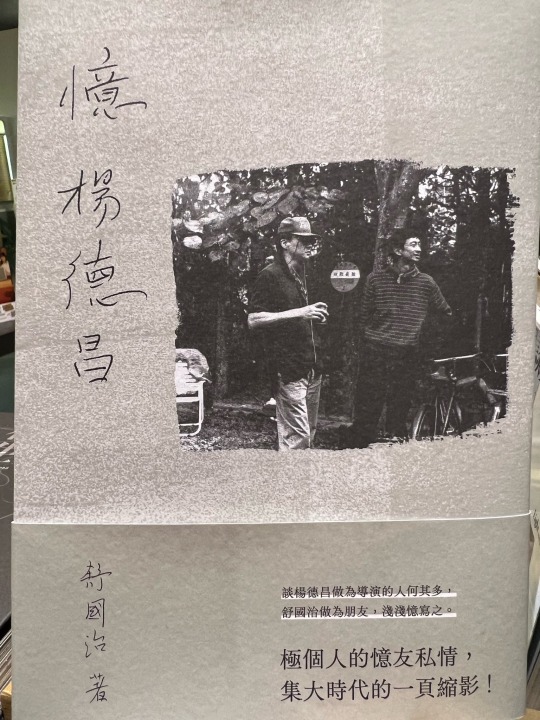 憶楊德昌
舒國治 著
談楊德昌做為導演的人何其多，
舒國治做為朋友，淺淺憶寫之。
極個人的憶友私情，
集大時代的一頁縮影！